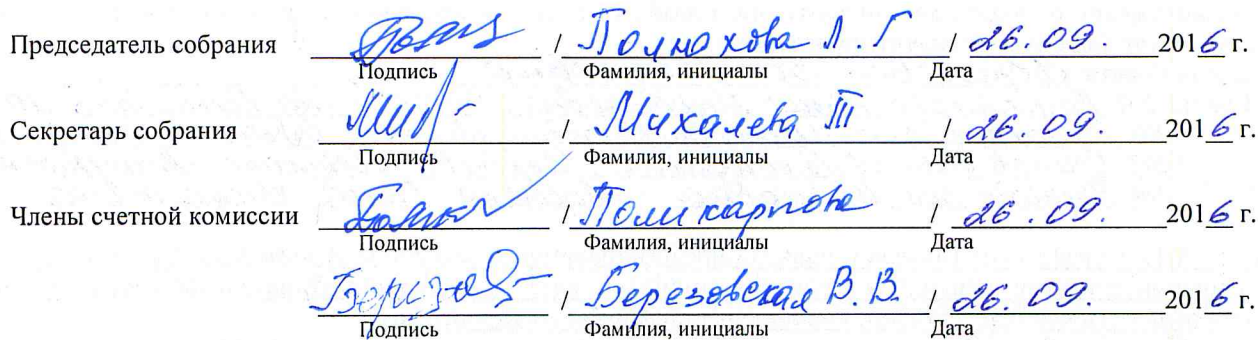 Председатель собрания / Полнохова Л.Г / 26.09. 2016 г.
Подпись Фамилия, инициалы Дата
Секретарь собрания / Михалева Т / 26.09. 2016 г.
Подпись Фамилия, инициалы Дата
Члены счетной комиссии / Поликарпова / 26.09. 2016 г.
Подпись Фамилия, инициалы Дата
/ Березовская В.В. / 26.09. 2016 г.
Подпись Фамилия, инициалы Дата